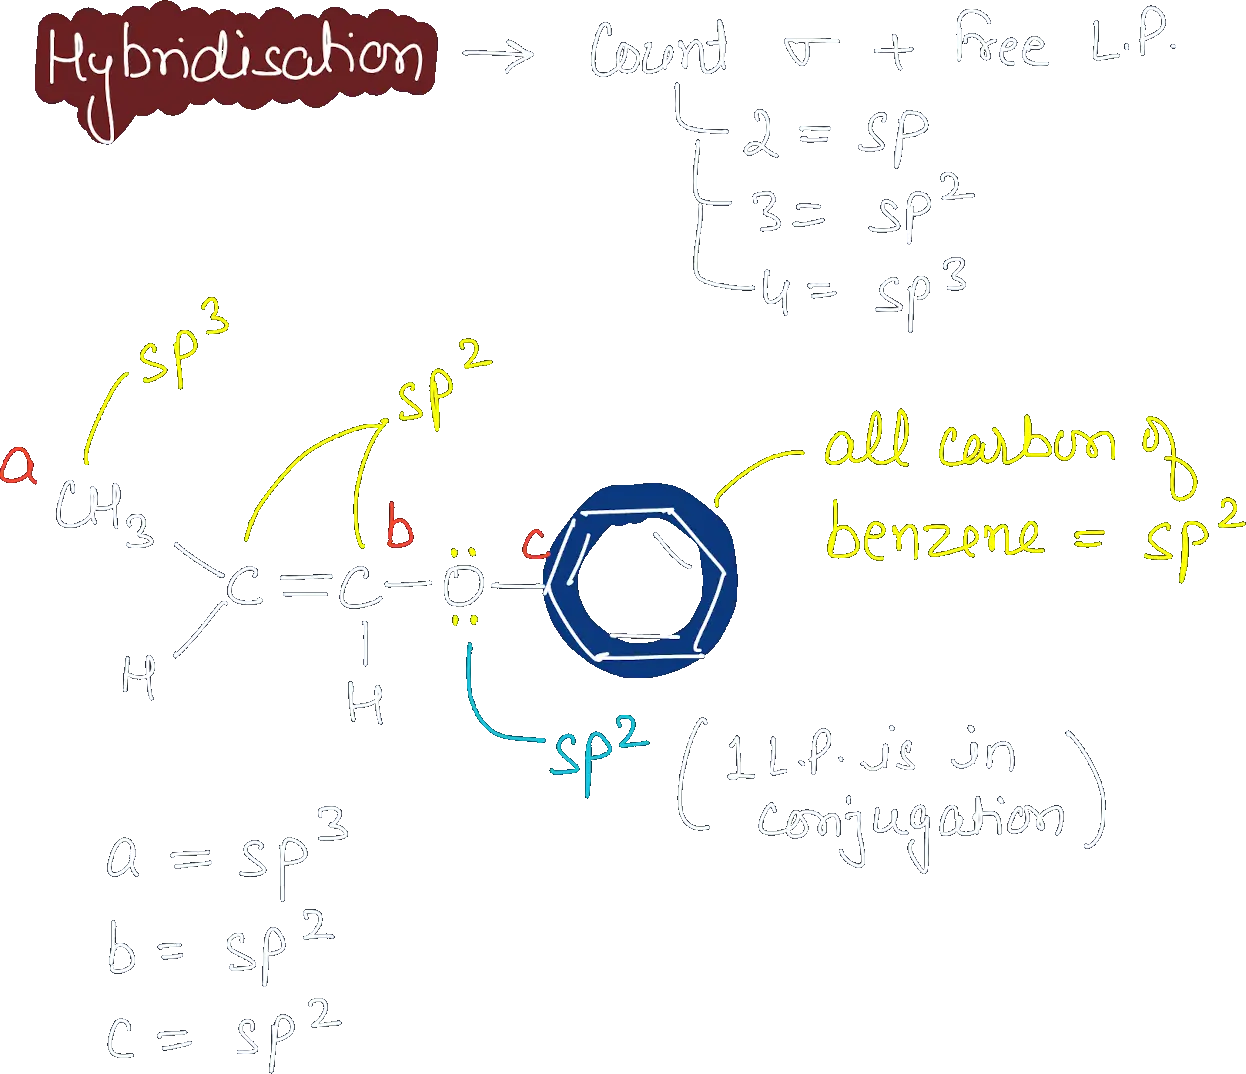 Hybridisation → Count σ + free L.P.
2 = sp
3 = sp²
4 = sp³
sp³
sp²
a
CH₃
b
c
all carbon of
benzene = sp²
C = C — O —
H
H
sp² (1 L.P. is in
conjugation)
a = sp³
b = sp²
c = sp²